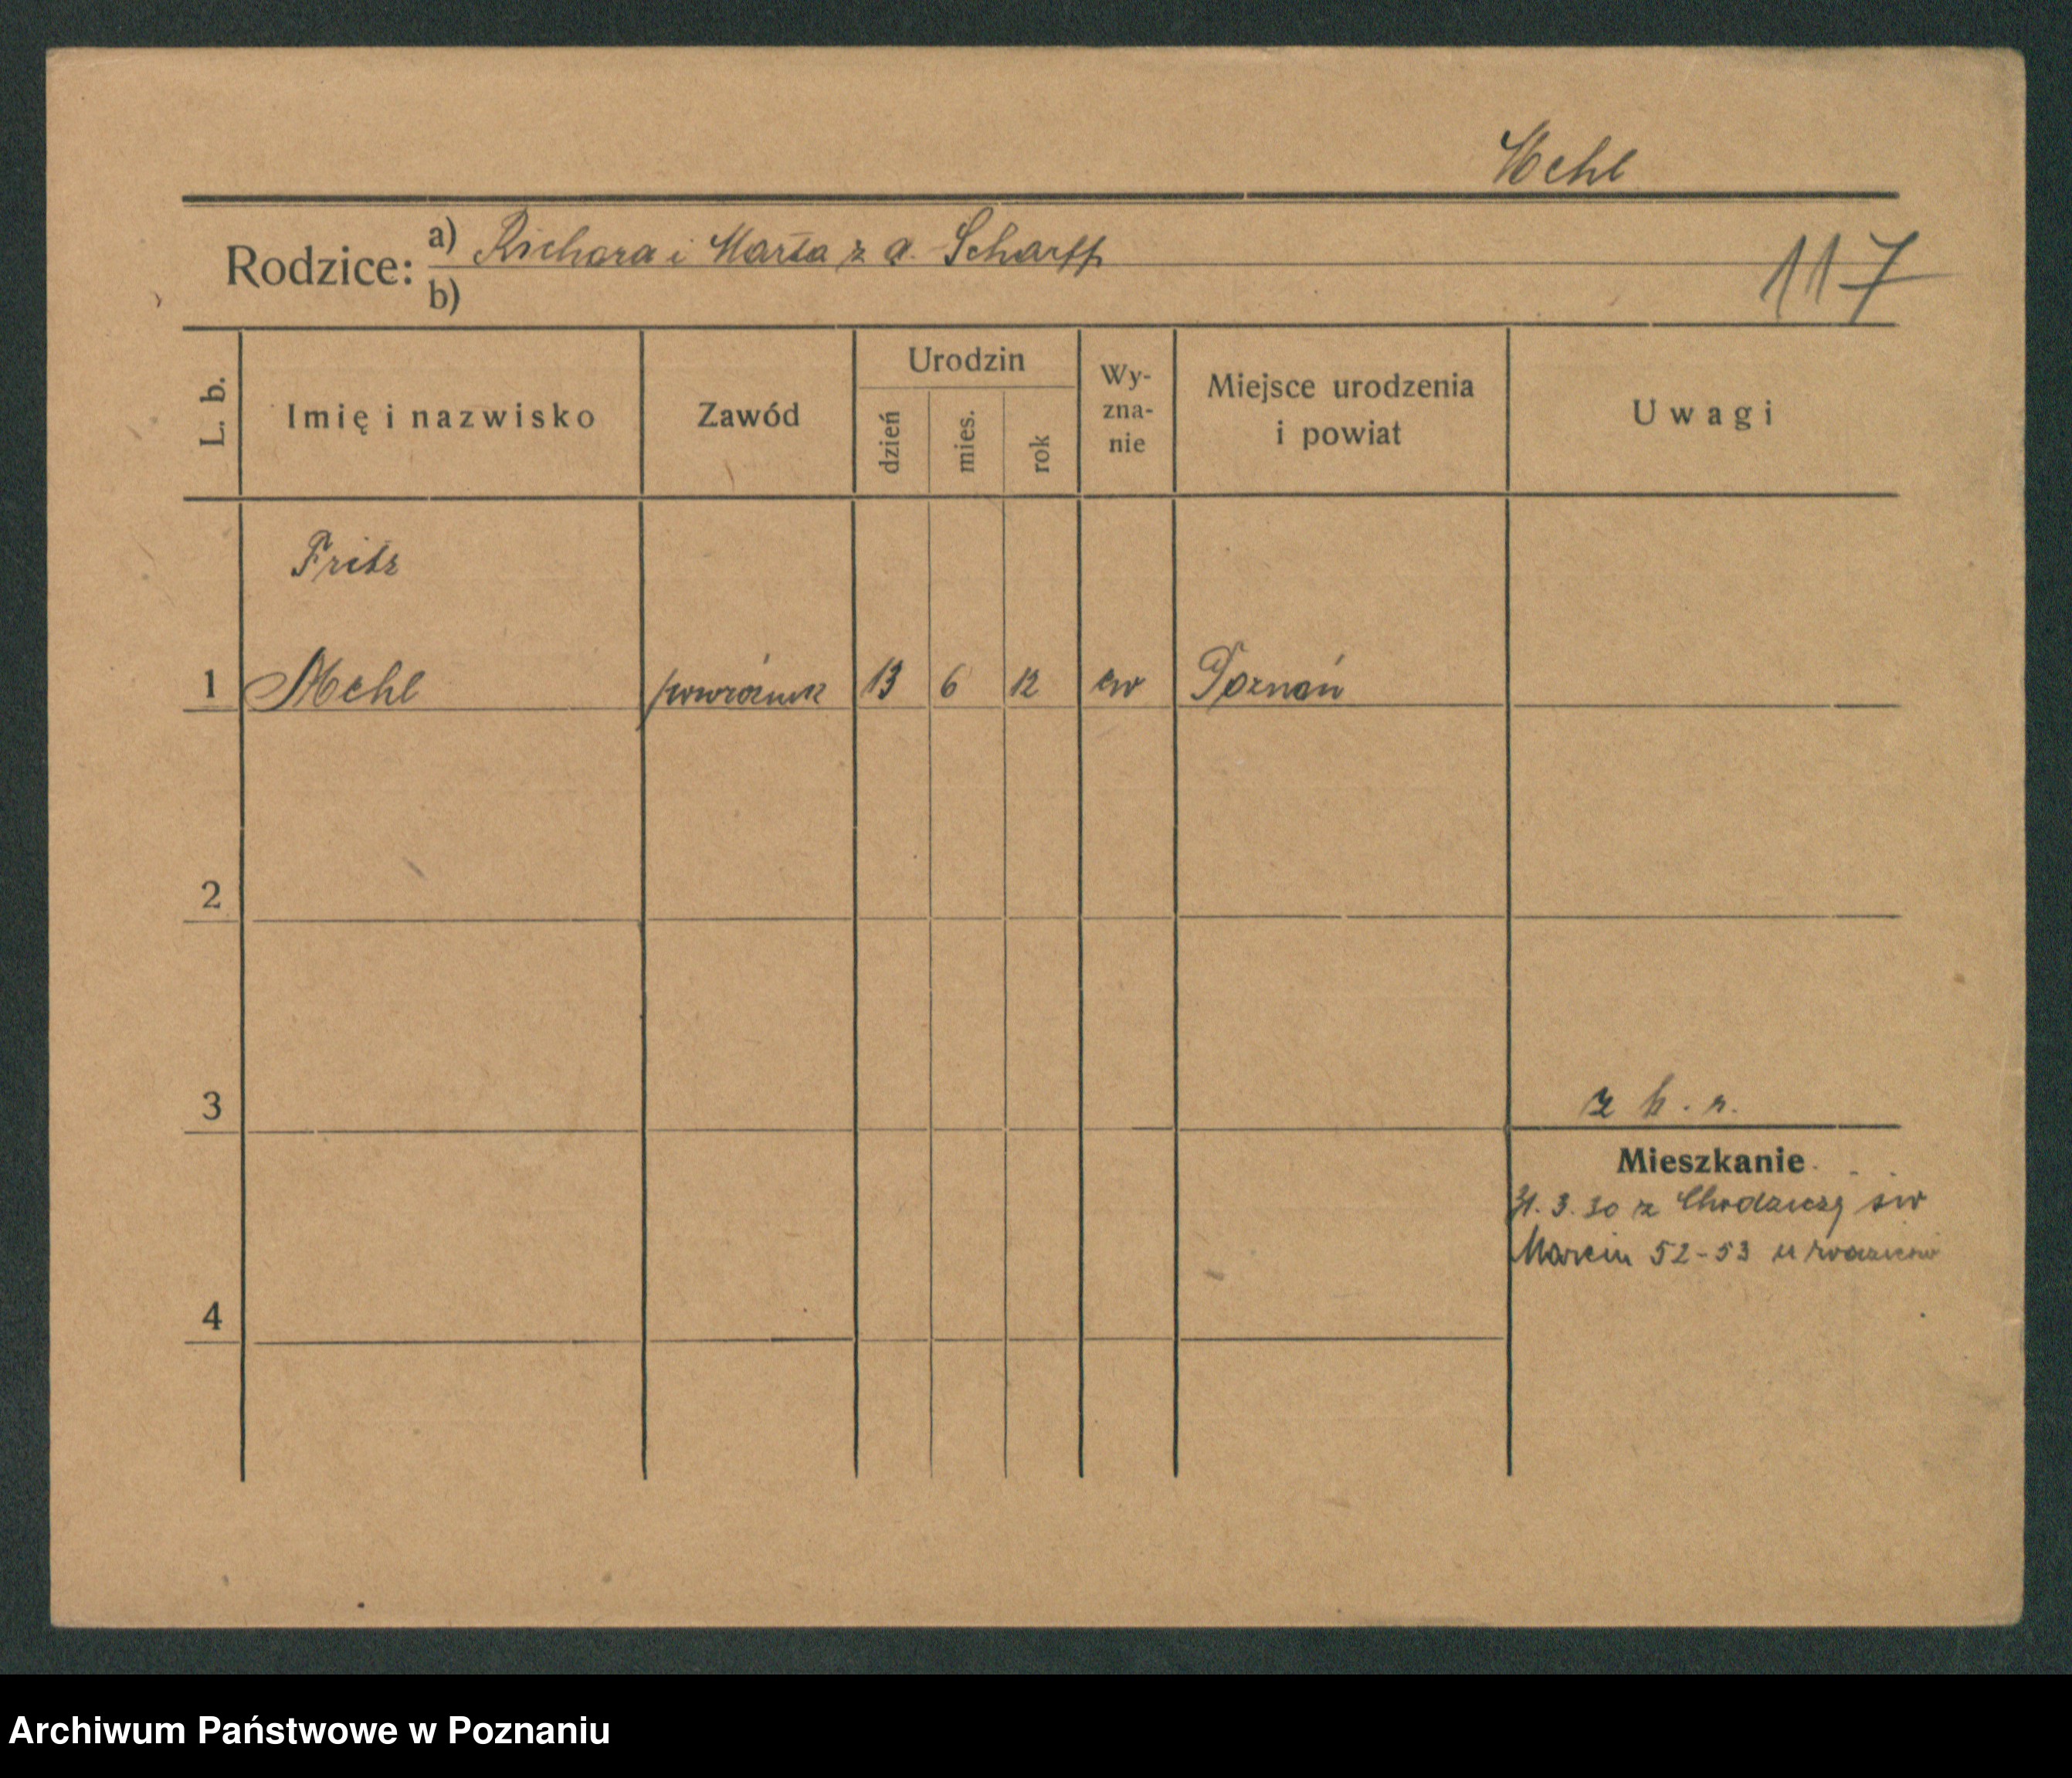 Mehl
Rodzice:
a) Richard i Marta z d. Scharff
b)
117
L. b.
Imię i nazwisko
Zawód
Urodzin
dzień
mies.
rok
Wy-
zna-
nie
Miejsce urodzenia
i powiat
Uwagi
Fritz
1 Mehl powroźnik 13 6 12 ew Poznań
2
3
z k. r.
Mieszkanie
31. 3. 30 z Chodzieży św
Marcin 52-53 u rodziców
4
Archiwum Państwowe w Poznaniu